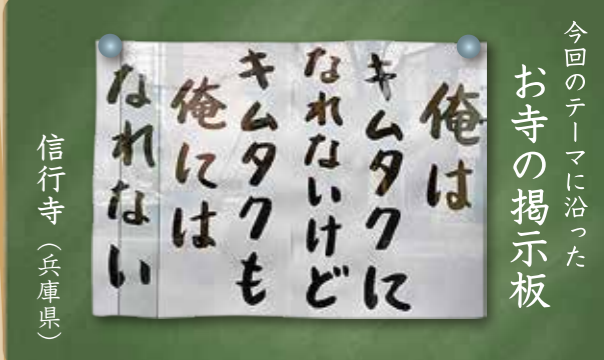 今回のテーマに沿った
お寺の掲示板
俺は
キムタクに
なれないけど
キムタクも
俺には
なれない
信行寺（兵庫県）